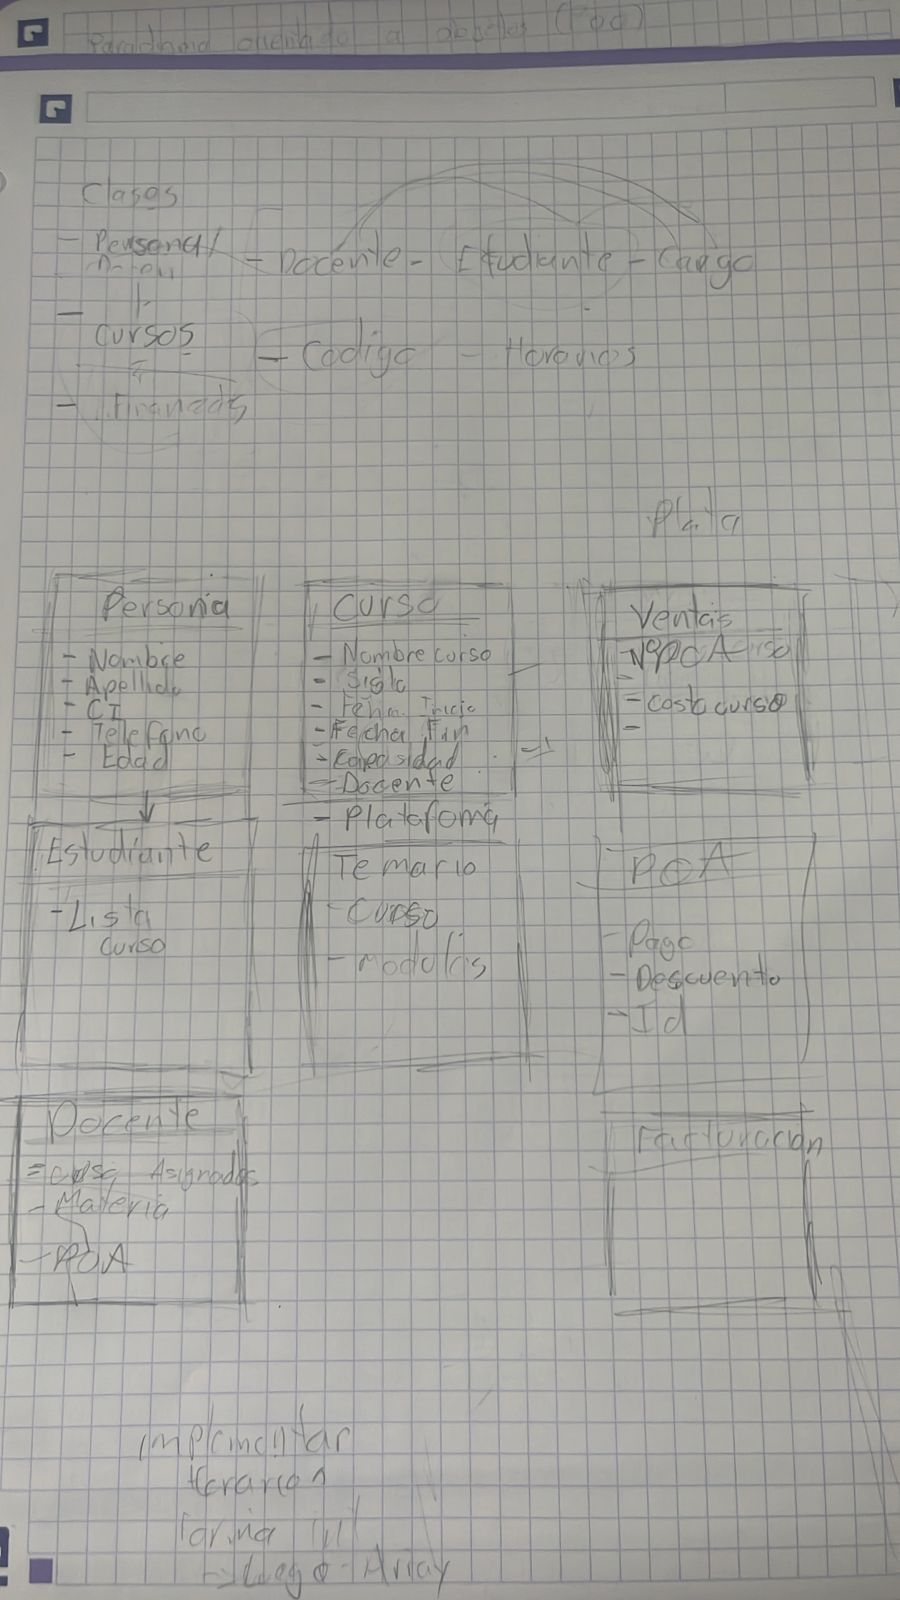 Paradigma orientado a objetos (Poo)
Clases
- Personal - Docente - Estudiante - Cargo
-
Cursos - Codigo - Horarios
- Finanzas
Plata
Persona
- Nombre
- Apellido
- CI
- Telefono
- Edad
Estudiante
- Lista
curso
Docente
= Asignados
- Materia
- POA
Curso
- Nombre curso
- Sigla
- Fecha Inicio
- Fecha Fin
- Capasidad
- Docente
- Platafoma
Temario
- Curso
- Modulos
Ventas
NºPOA
= Costo curso
-
POA
- Pago
- Descuento
- Id
Facturación
implementar
Luego - Array